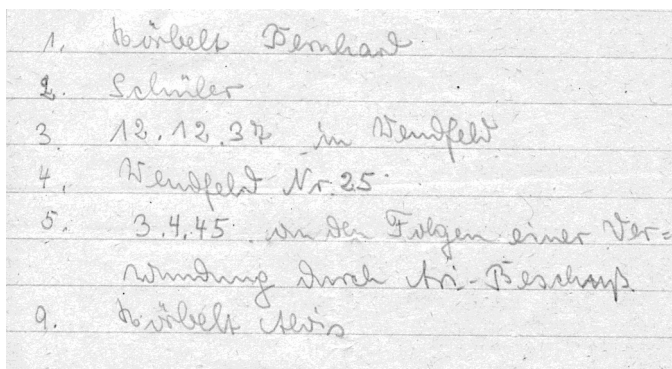 1. Körbelt Bernhard
2. Schüler
3. 12.12.37 in Wendfeld
4. Wendfeld Nr. 25
5. 3.4.45 an den Folgen einer Ver=
wundung durch Ari-Beschuß.
9. Körbelt Alois